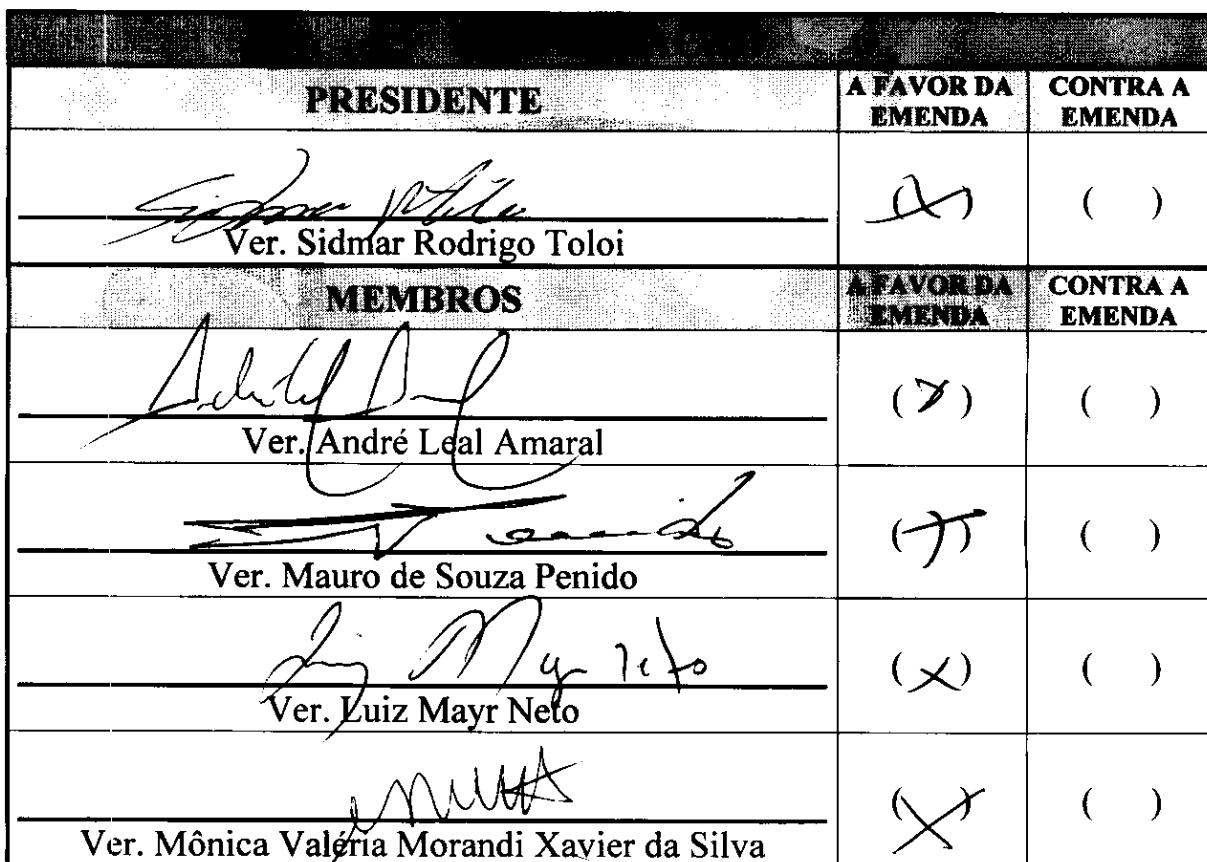 PRESIDENTE A FAVOR DA EMENDA CONTRA A EMENDA
(X) ( )
Ver. Sidmar Rodrigo Toloi
MEMBROS A FAVOR DA EMENDA CONTRA A EMENDA
(X) ( )
Ver. André Leal Amaral
(X) ( )
Ver. Mauro de Souza Penido
Luiz Mayr Neto
(X) ( )
Ver. Luiz Mayr Neto
(X) ( )
Ver. Mônica Valéria Morandi Xavier da Silva